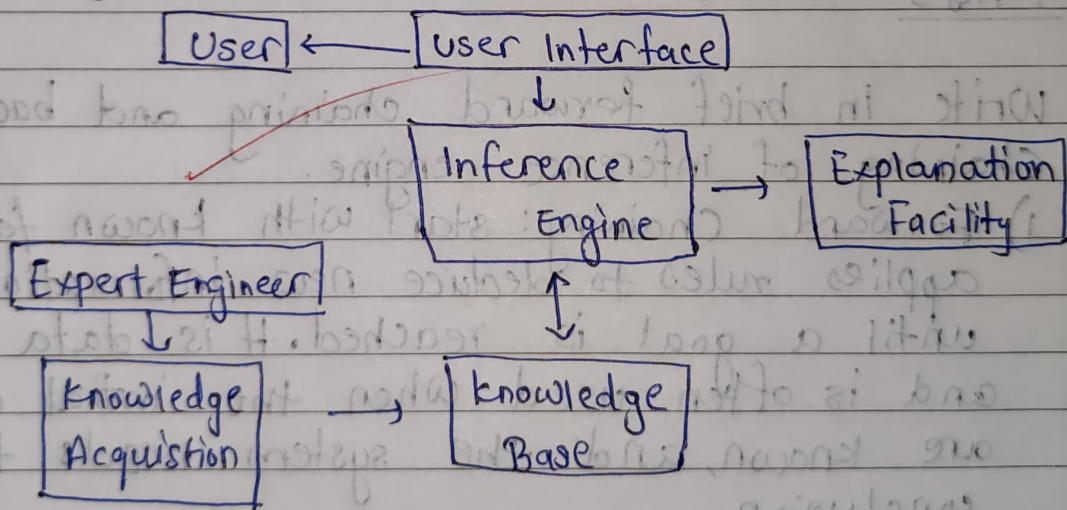 User
User Interface
Inference
Engine
Explanation
Facility
Expert Engineer
Knowledge
Acquistion
Knowledge
Base